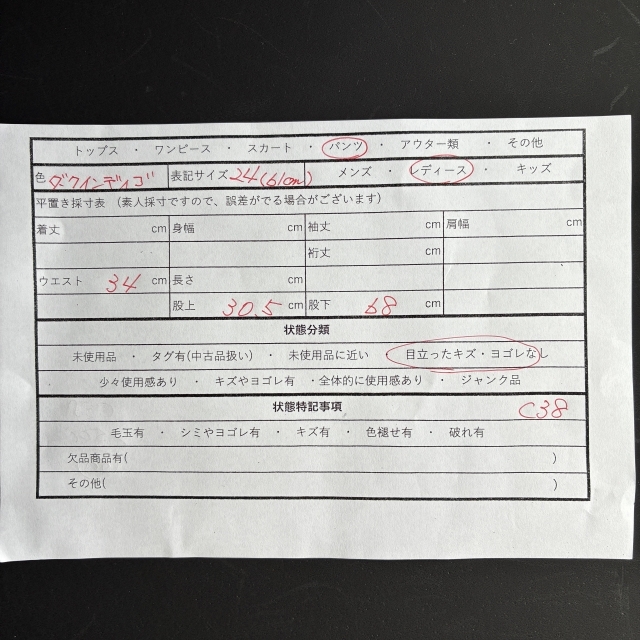 トップス ・ ワンピース ・ スカート ・ パンツ ・ アウター類 ・ その他
色 ダークインディゴ 表記サイズ 24(61cm) メンズ ・ レディース ・ キッズ
平置き採寸表 (素人採寸ですので、誤差がでる場合がございます)
着丈 cm 身幅 cm 袖丈 cm 肩幅 cm
裄丈 cm
ウエスト 34 cm 長さ cm
股上 30.5 cm 股下 68 cm
状態分類
未使用品 ・ タグ有(中古品扱い) ・ 未使用品に近い ・ 目立ったキズ・ヨゴレなし
少々使用感あり ・ キズやヨゴレ有 ・全体的に使用感あり ・ ジャンク品
状態特記事項 C38
毛玉有 ・ シミやヨゴレ有 ・ キズ有 ・ 色褪せ有 ・ 破れ有
欠品商品有( )
その他( )